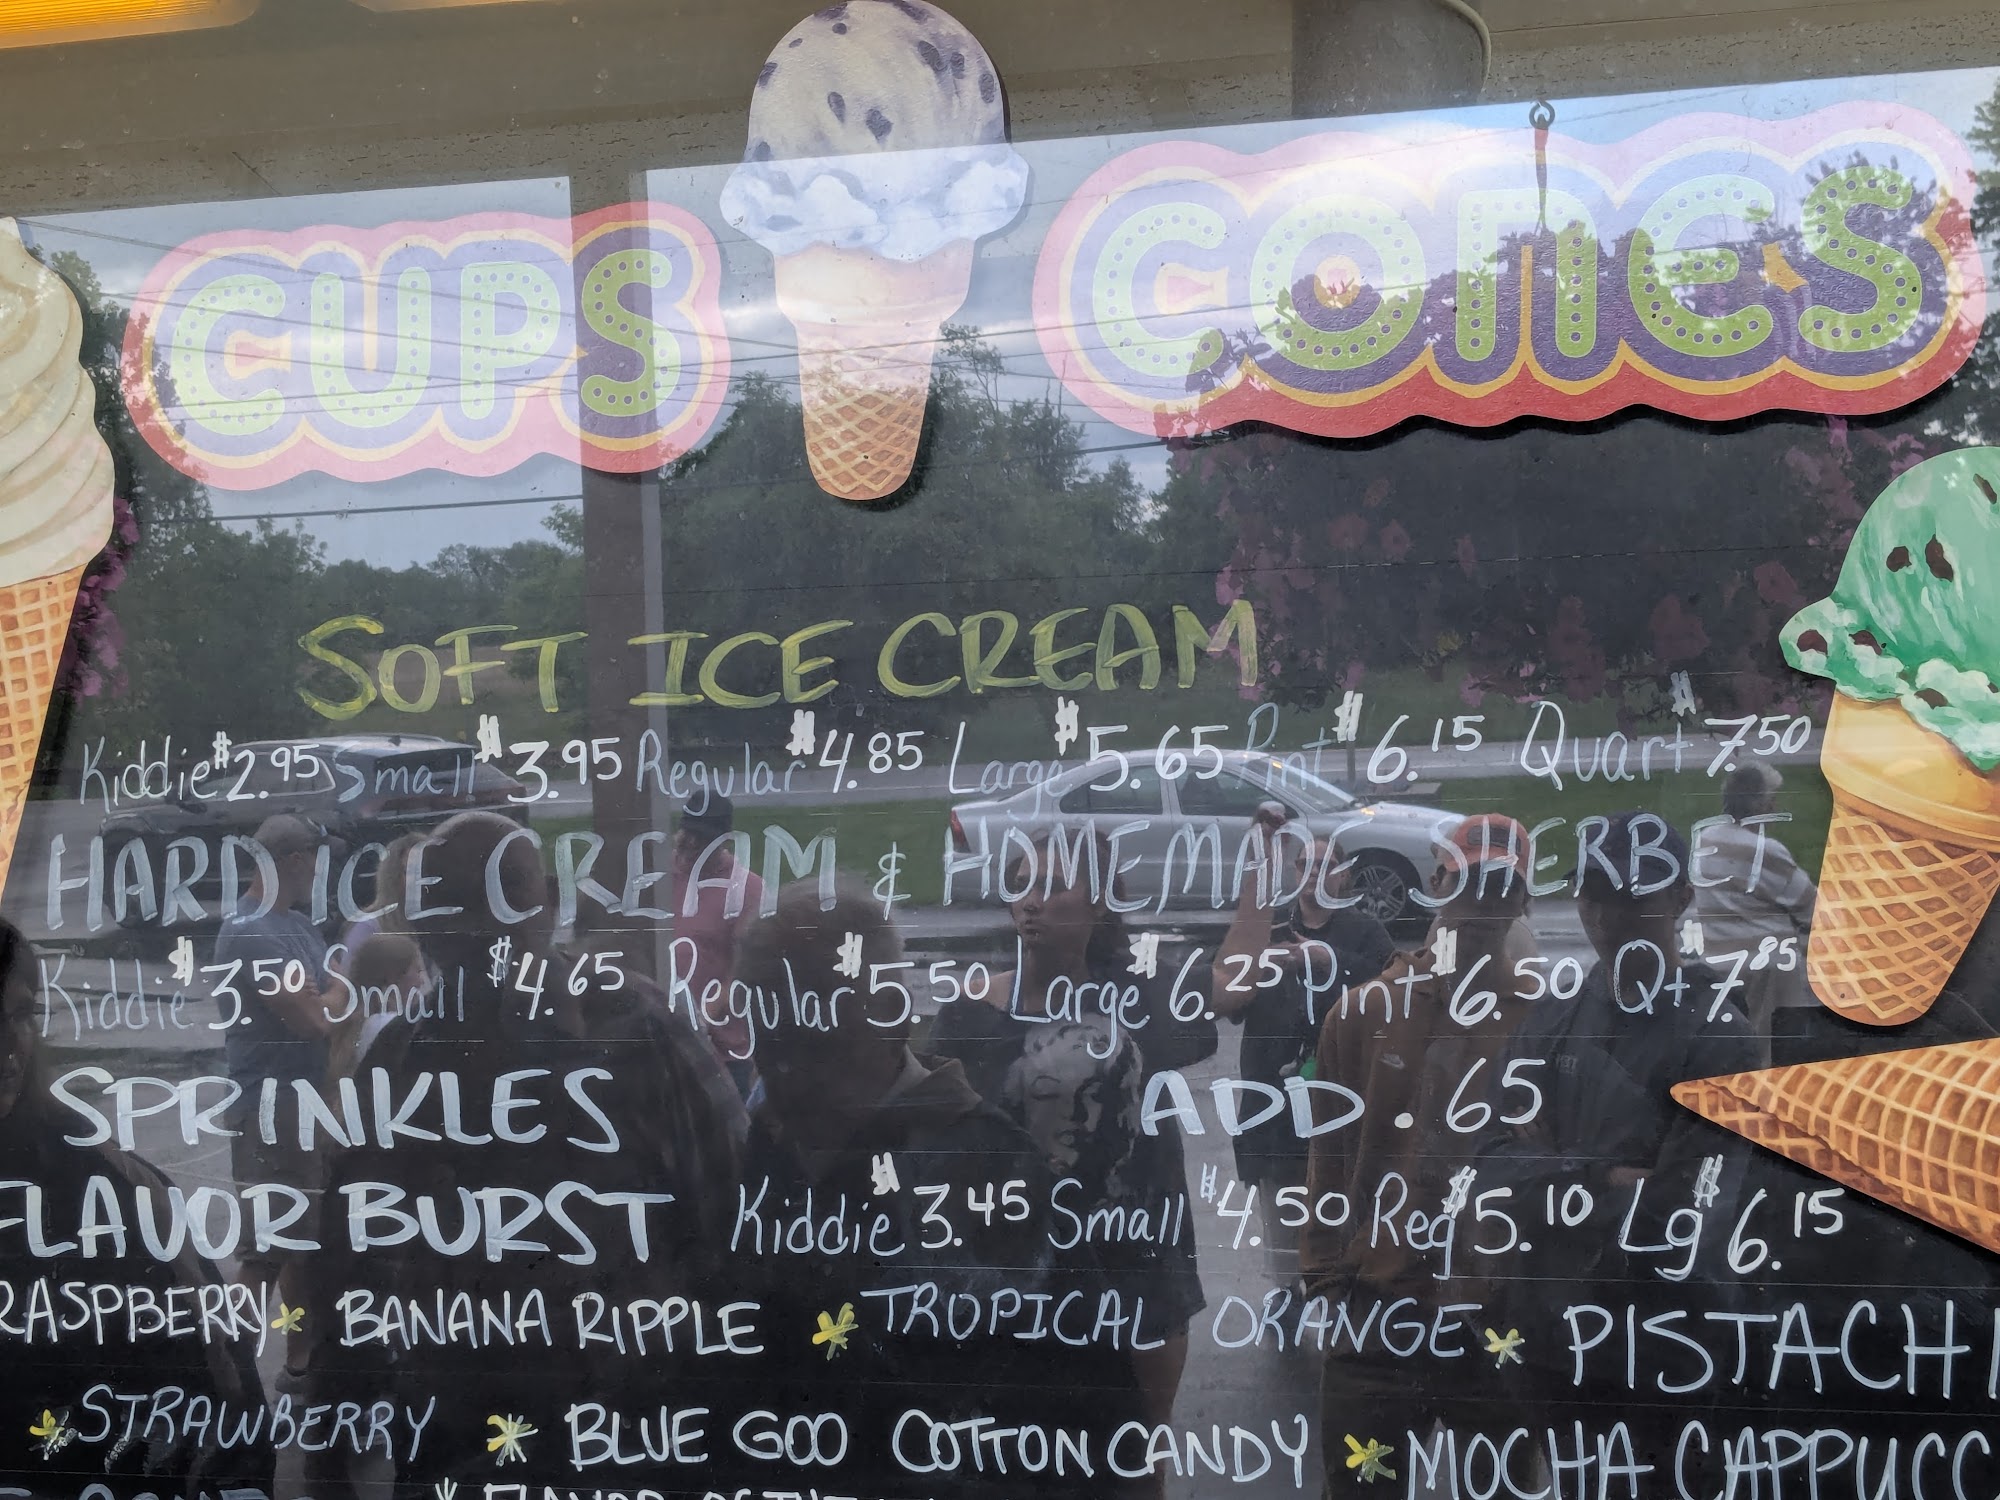 CUPS CONES
SOFT ICE CREAM
Kiddie $2.95 Small $3.95 Regular $4.85 Large $5.65 Pint $6.15 Quart $7.50
HARD ICE CREAM & HOMEMADE SHERBET
Kiddie $3.50 Small $4.65 Regular $5.50 Large $6.25 Pint $6.50 Qt $7.85
SPRINKLES ADD .65
FLAVOR BURST Kiddie $3.45 Small $4.50 Reg $5.10 Lg $6.15
RASPBERRY * BANANA RIPPLE * TROPICAL ORANGE * PISTACHI
* STRAWBERRY * BLUE GOO COTTON CANDY * MOCHA CAPPUCC